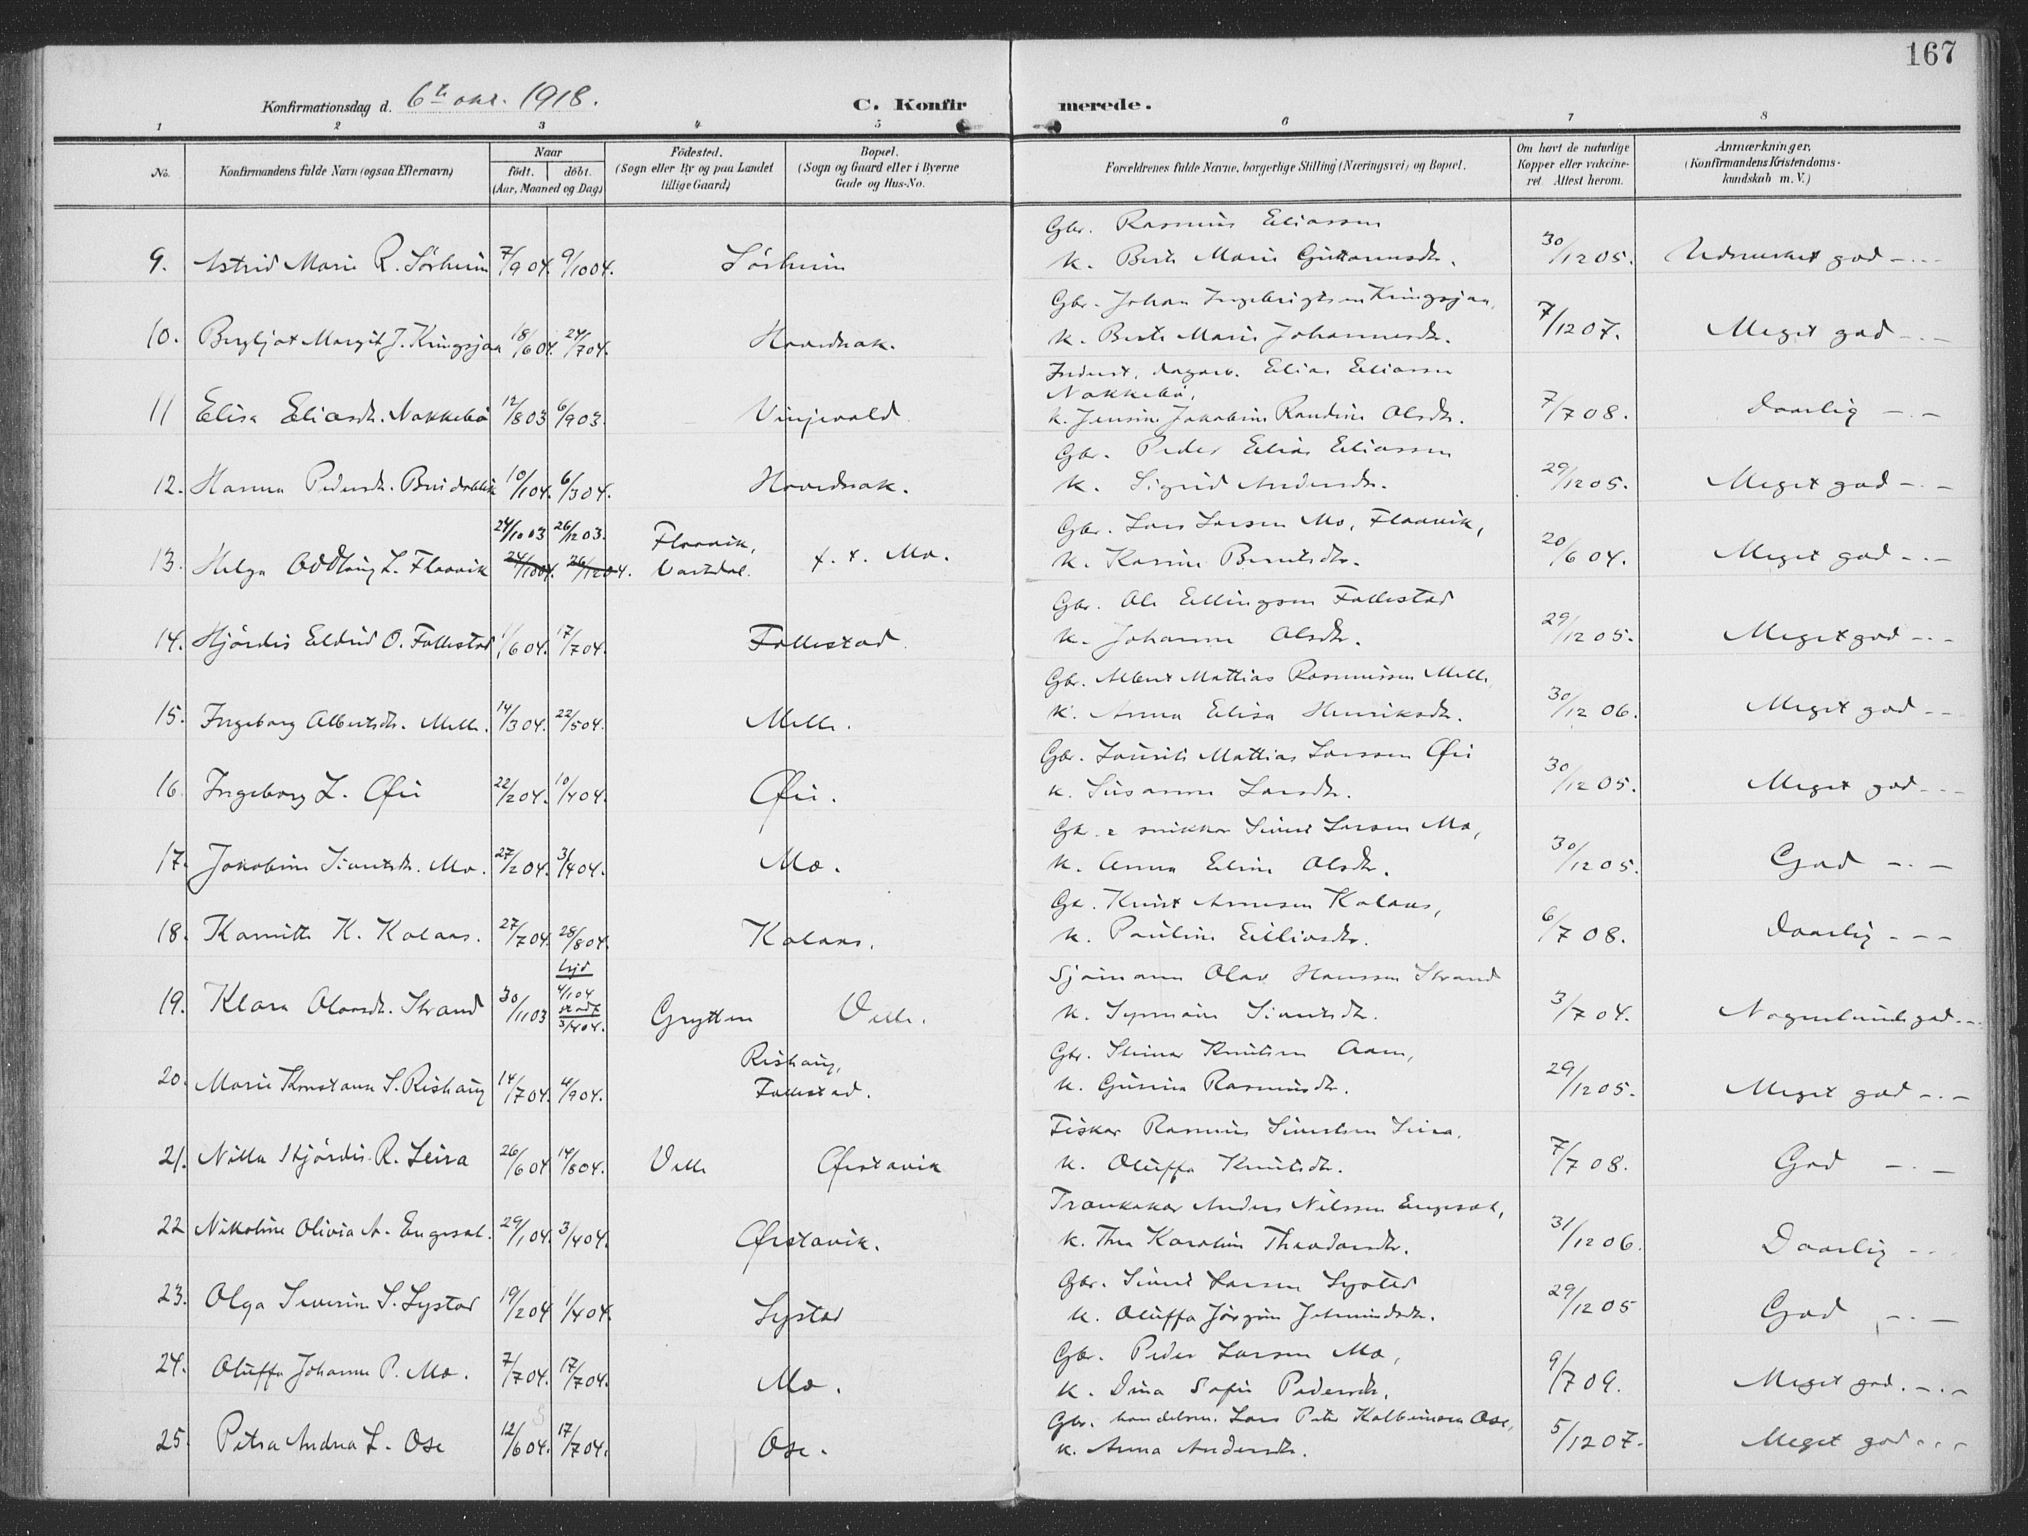 167
Konfirmationsdag d. 6te okt. 1918.
C. Konfir merede.
1 2 3 4 5 6 7 8
No.
Konfirmandens fulde Navn (ogsaa Efternavn)
Naar
født. døbt.
(Aar, Maaned og Dag)
Fødested.
(Sogn eller By og paa Landet
tillige Gaard)
Bopæl.
(Sogn og Gaard eller i Byerne
Gade og Hus-No.
Forældrenes fulde Navne, borgerlige Stilling (Næringsvei) og Bopæl.
Om havt de naturlige
Kopper eller vakcine-
ret Attest herom.
Anmærkninger,
(Konfirmandens Kristendoms-
kundskab m. V.)
Gbr. Rasmus Eliassen
9. Astrid Marie R. Sørheim 7/9 04. 9/10 04. Sørheim K. Berte Marie Guttormsdtr. 30/12 05. Udmerket god - . -
Gbr. Johan Ingebrigtsen Kringsjaa,
10. Bergljot Margit J. Kringsjaa 18/6 04. 24/7 04. Hovednak. K. Berte Marie Johannesdtr. 7/12 07. Meget god - . -
Inderst, dagarb. Elias Eliassen
Nakkebø,
11 Elisa Eliasdtr. Nakkebø 12/8 03 6/9 03. Vinjevold K. Jensine Jakobine Randine Olsdtr. 7/7 08. Daarlig - . -
Gbr. Peder Elias Eliassen
12. Hanna Pedersdtr. 10/1 04. 6/3 04. Hovednak. K. Sigrid Andersdtr. 29/12 05. Meget god - . -
24/10 03 26/12 03. Flaavik, Gbr. Lars Larsen Mo, Flaavik,
13. Helga Oddlaug L. Flaavik 24/10 04. 26/12 04. Vartdal. f. t. Mo. K. Karine Berntsdtr. 20/6 04. Meget god - . -
Gbr. Ole Ellingsen Follestad
14. Hjørdis Eldrid O. Follestad 1/6 04. 17/7 04. Follestad K. Johanne Olsdtr. 29/12 05. Meget god - . -
Gbr. Albert Mattias Rasmussen Melle,
15. Ingeborg Albertsdtr. Melle. 14/3 04. 22/5 04. Melle. K. Anna Elisa Henriksdtr. 30/12 06. Meget god - -
Gbr. Laurits Mattias Larssen Øfsti
16. Ingeborg L. 22/2 04. 10/4 04. K. Susanne Larsdtr. 30/12 05. Meget god - . -
Gbr. & snikker Sivert Larsen Mo,
17. Jakobine Sivertsdtr. Mo. 27/2 04. 3/4 04. Mo. K. Anna Eline Olsdtr. 30/12 05. God - . -
Gbr. Knut Arnesen Kolaas,
18. Kamitte K. Kolaas. 27/7 04. 28/8 04. Kolaas. K. Pauline Eilliasdtr. 6/7 08. Daarlig - - -
hjd Sjømann Olav Hanssen Strand
4/1 04
stadf.
19. Klara Olavsdtr. Strand 30/11 03 3/4 04. Grytten Velle. K. Synnøve Sivertsdtr. 3/7 04. Nogenlunde god. - -
Rishaug, Gbr. Steinar Knutsen Aam,
20. Marie Konstanse S. Rishaug 14/7 04. 4/9 04. Follestad. K. Gurine Rasmusdtr. 29/12 05. Meget god - . -
Fisker Rasmus Sivertsen Leira,
21. Nilla Hjørdis R. Leira 26/6 04. 14/8 04. Velle Ørstavik K. Oluffa Knutsdtr. 7/7 08. God - . -
Trankoker Anders Nilssen Engeset,
22 Nikoline Olivia A. Engeset. 29/1 04. 3/4 04. Ørstavik. K. Thea Karoline Theodorsdtr. 31/12 06. Daarlig - - -
Gbr. Sivert Larsen Systad
23. Olga Severine S. Systad 19/2 04 1/4 04. Systad K. Oluffa Jørgine Jetmundsdtr. 29/12 05 God - . -
Gbr. Peder Larsen Mo,
24. Oluffa Johanne P. Mo. 7/7 04. 17/7 04. Mo. K. Dina Sofie Pedersdtr. 9/7 09. Meget god. - . -
Gbr. handelsm. Lars Peter Kolbeinsen Ose,
25. Petra Andrea L. Ose 12/6 04. 17/7 04. Ose. K. Anna Andersdtr. 5/12 07. Meget god - . -